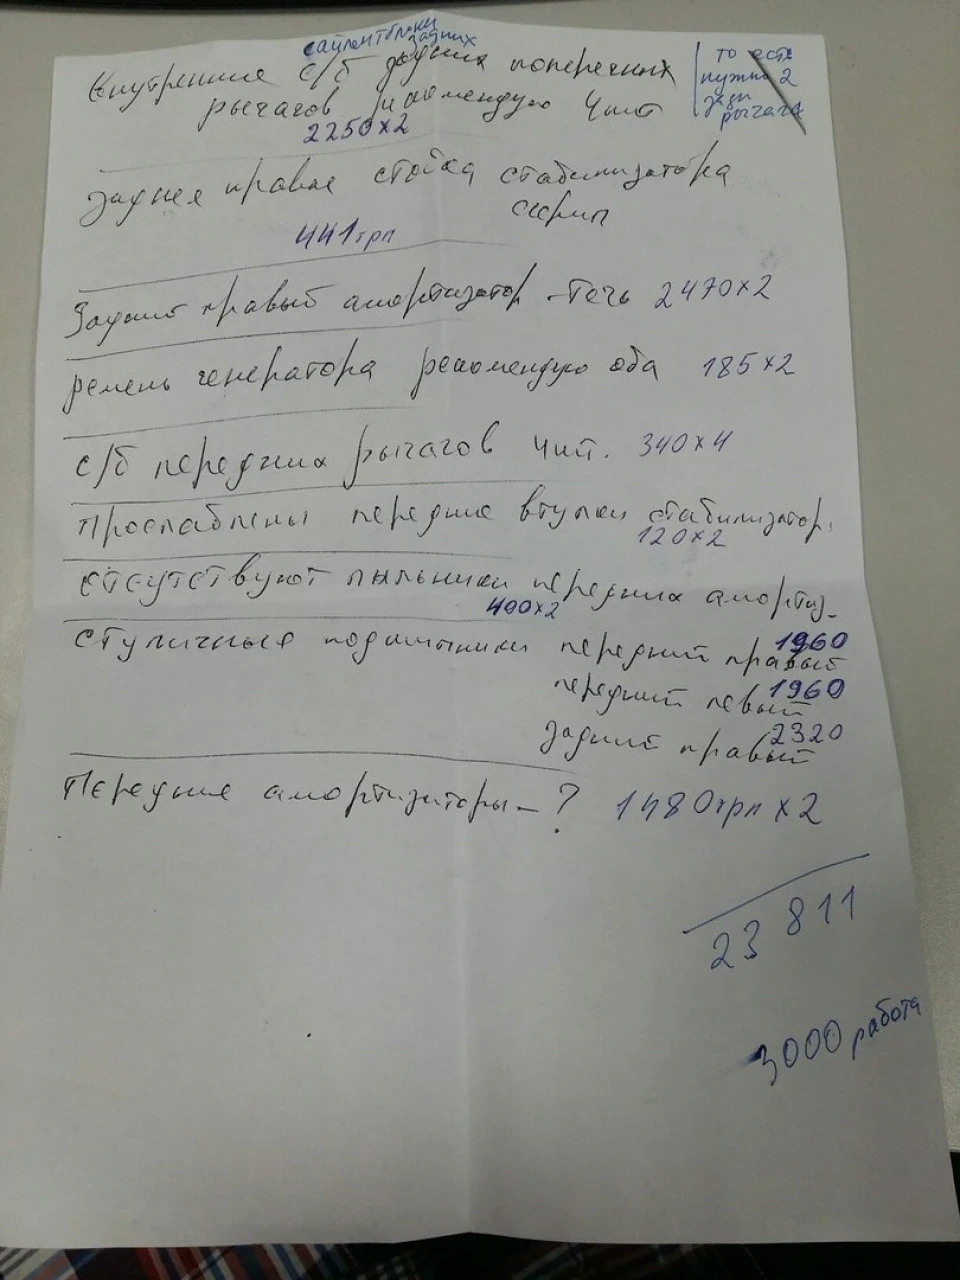 сайлентблоки
задних
Внутренние с/б задних поперечных
рычагов рекомендую 4шт
2250х2
то есть
нужно 2
рычага
Заднея правая стойка стабилизатора
скрип
441грп
Задний правый амортизатор - течь 2470х2
ремень генератора рекомендую оба 185х2
с/б передних рычагов 4шт. 340х4
Прослаблены передние втулки стабилизатор.
120х2
отсутствуют пыльники передних амортиз-
400х2
ступичные подшипники передний правый
1960
передний левый
1960
задний правый
2320
Передние амортизиторы - ? 1480грп х2
23 811
3000 работа